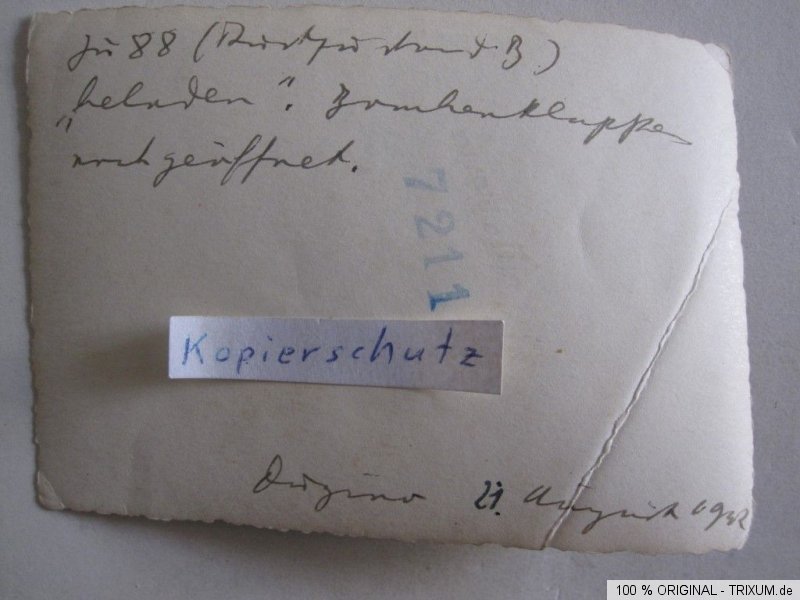 Ju 88 (Rustzustand B)
„beladen“. Bombenklappen
noch geöffnet.
7211
Kopierschutz
Dugino 21. August 1942
100 % ORIGINAL - TRIXUM.de